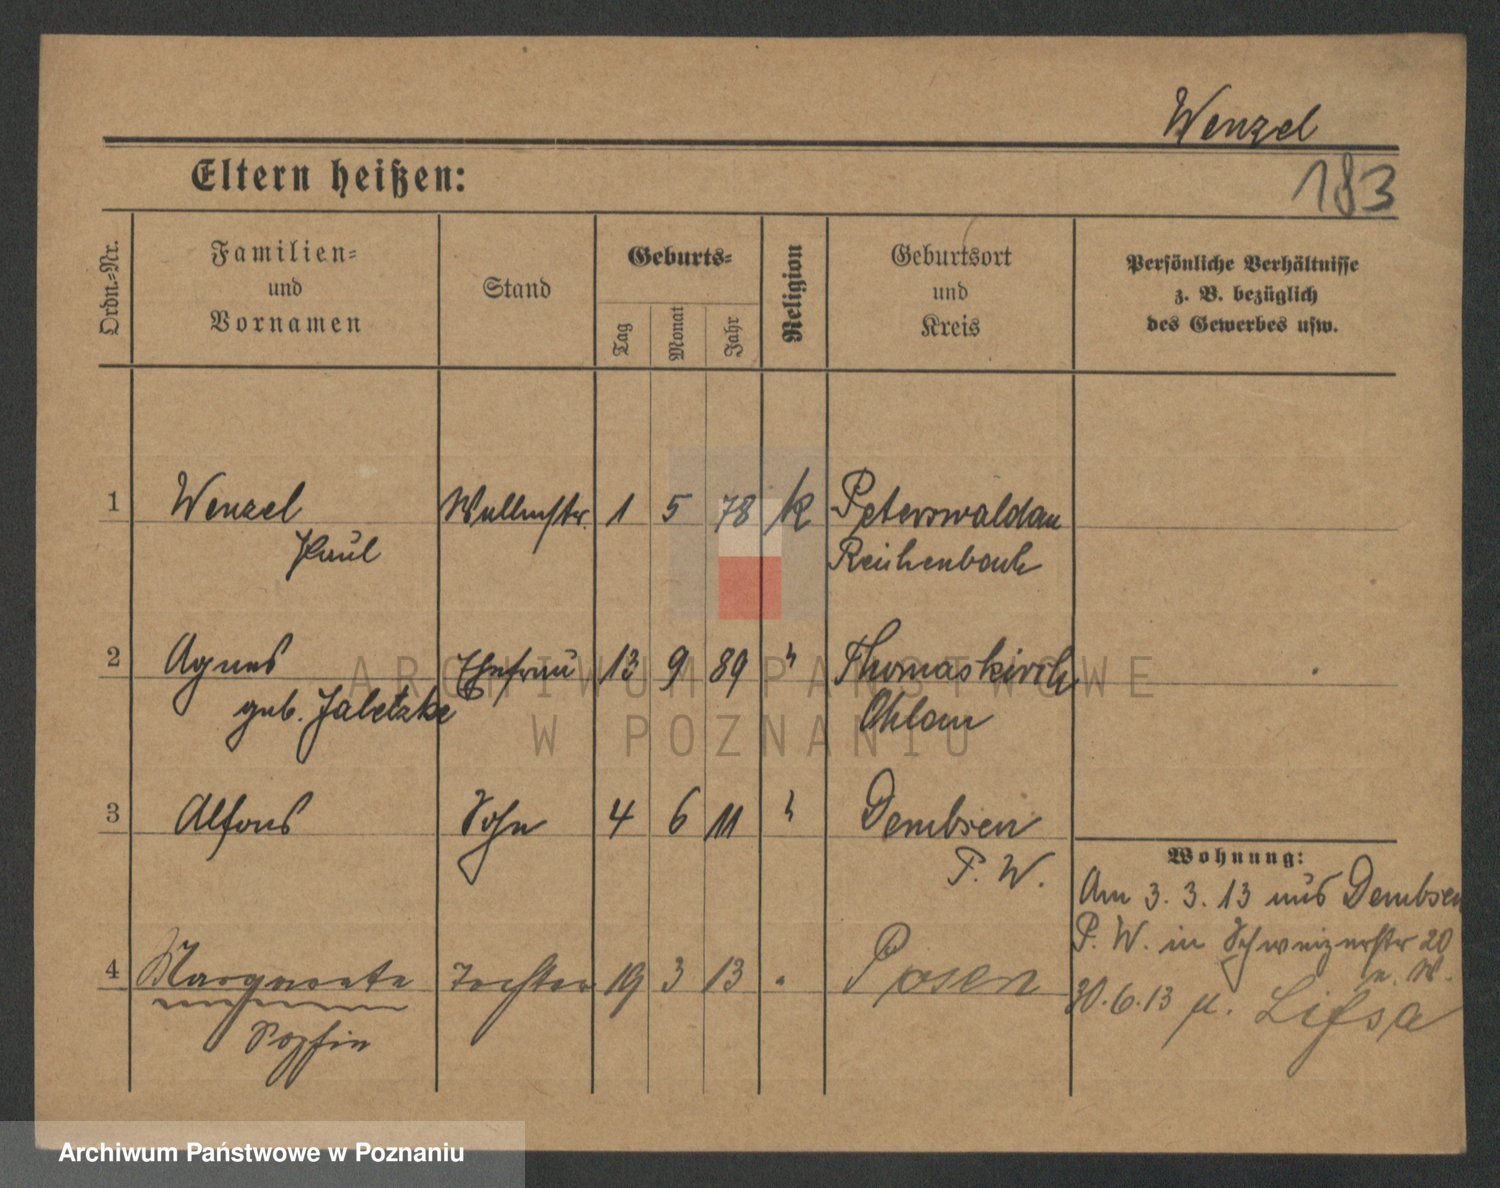 Wenzel
Eltern heißen:
183
Ordn.-Nr.
Familien-
und
Vornamen
Stand
Geburts-
Tag
Monat
Jahr
Religion
Geburtsort
und
Kreis
Persönliche Verhältnisse
z. B. bezüglich
des Gewerbes usw.
1 Wenzel 1 5 78 k Peterswaldau
Paul Reichenbach
2 Agnes Ehefrau 13 9 89 " Thomaskirch
geb. Jaletzke Ohlau
3 Alfons Sohn 4 6 11 " Dembsen
P. W.
Wohnung:
Am 3. 3. 13 aus Dembsen
P. W. in Schweizerstr 20
4 Margarete Tochter 19 3 13 " Posen
Sophie
30.6.13 n. Lissa
ARCHIWUM PAŃSTWOWE
W POZNANIU
Archiwum Państwowe w Poznaniu